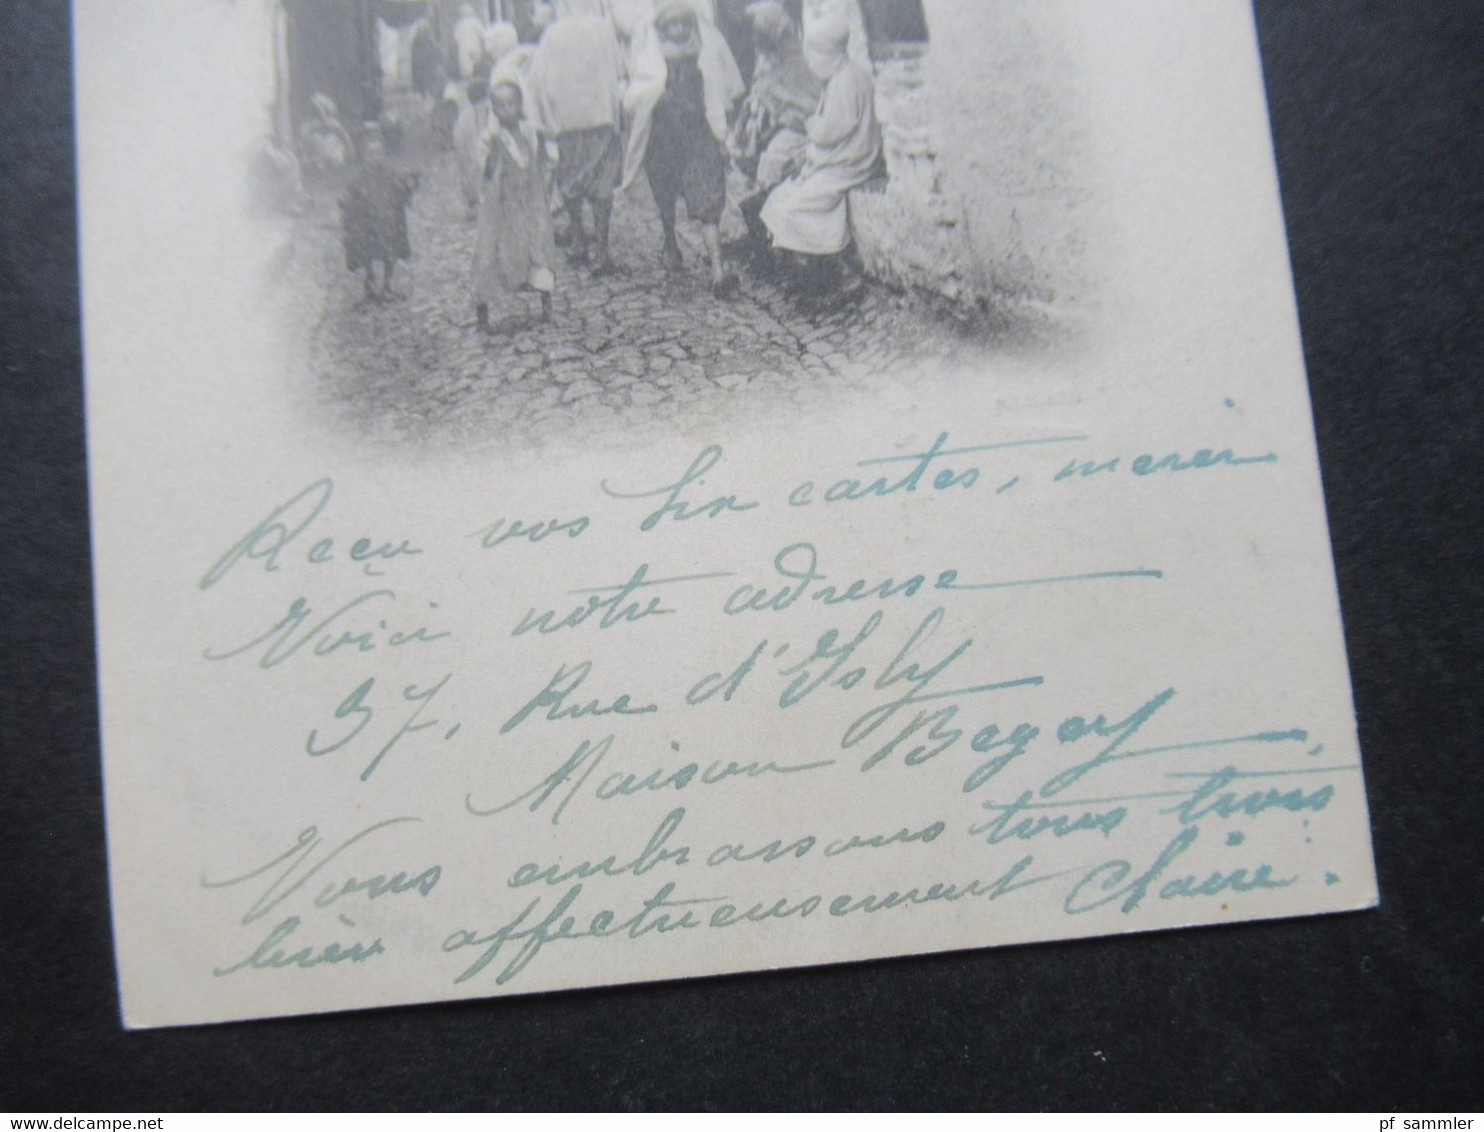 Reçu vos six cartes, merci
Voici notre adresse
37, Rue d'Isly
Maison
Vous embrassons tous trois
bien affectueusement Claire.
www.delcampe.net
pf_sammler